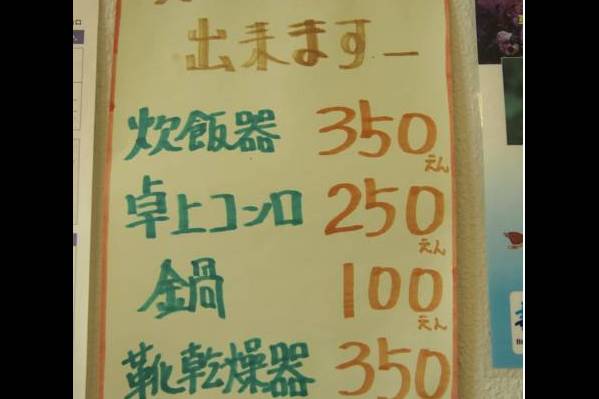 出来ます
炊飯器 350えん
卓上コンロ 250えん
金鍋 100えん
靴乾燥器 350